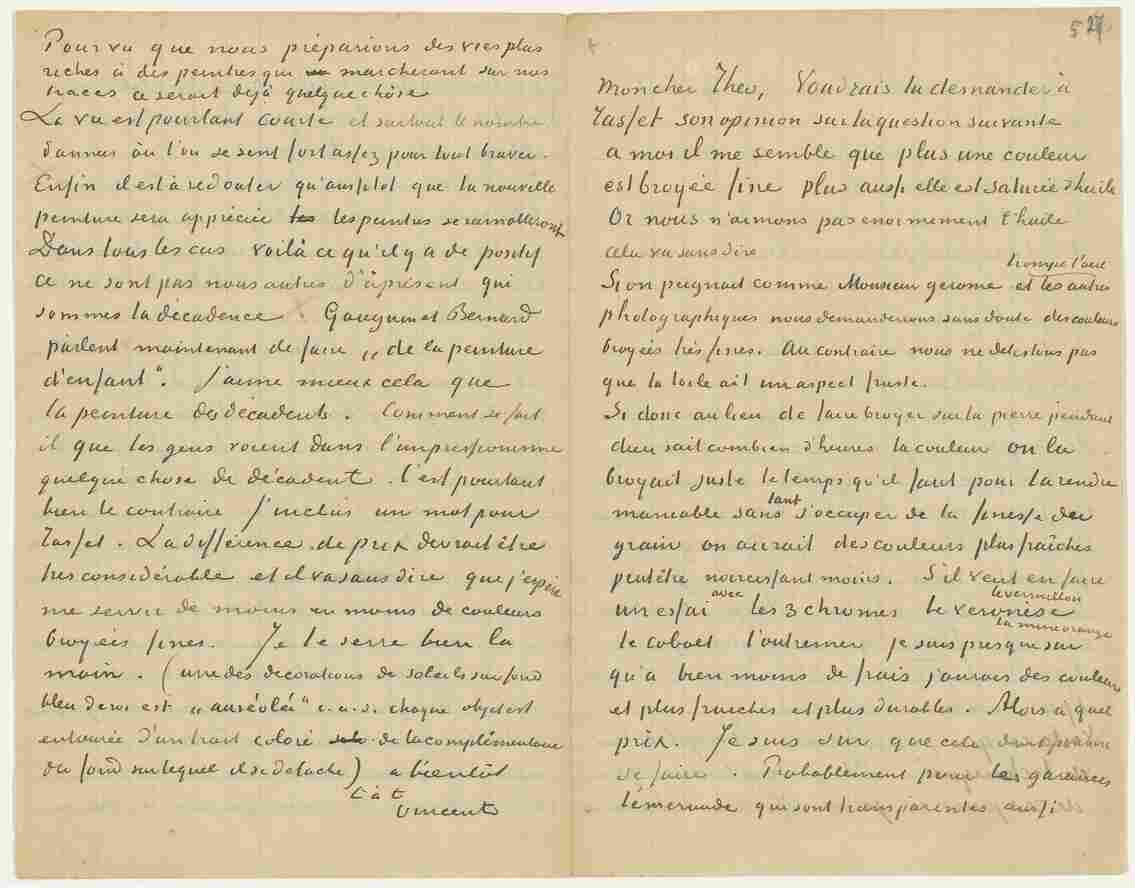 Pourvu que nous préparions des vies plus
riches à des peintres qui marcheront sur nos
traces ce serait déjà quelque chôse
La vie est pourtant courte et surtout le nombre
d'annees où l'on se sent fort assez pour tout braver.
Enfin il est à redouter qu'aussitot que la nouvelle
peinture sera appreciée les les peintres se ramolliront
Dans tous les cas voilà ce qu'il y a de positif
ce ne sont pas nous autres d'àprésent qui
sommes la décadence. Gauguin et Bernard
parlent maintenant de faire „de la peinture
d'enfant". J'aime mieux cela que
la peinture des décadents. Comment se fait
il que les gens voient dans l'impressionisme
quelque chose de décadent. C'est pourtant
bien le contraire J'inclus un mot pour
Tasset. La différence de prix devrait être
très considérable et il va sans dire que j'espère
me servir de moins en moins de couleurs
broyées fines. Je te serre bien la
main. (une des decorations de soleils sur fond
bleu de roi est „auréolée" c.a.d. chaque objet est
entourée d'un trait coloré de la complémentaire
du fond sur lequel il se detache) a bientôt
t à t
Vincent
5 27
Mon cher Theo, Voudrais tu demander à
Tasset son opinion sur la question suivante
a moi il me semble que plus une couleur
est broyée fine plus aussi elle est saturée d'huile
Or nous n'aimons pas enormement l'huile
cela va sans dire
Si on peignait comme Monsieur gerome et les autres trompe l'oeil
photographiques nous demanderions sans doute des couleurs
broyées très fines. Au contraire nous ne detestons pas
que la toile ait un aspect fruste.
Si donc au lieu de faire broyer sur la pierre pendant
dieu sait combien d'heures la couleur on la
broyait juste le temps qu'il faut pour la rendre
maniable sans tant s'occuper de la finesse du
grain on aurait des couleurs plus fraîches
peutêtre noircissant moins. S'il veut en faire
un essai avec les 3 chromes le veronèse le vermillon
la mine orange
le cobalt l'outremer je suis presque sur
qu'a bien moins de frais j'aurais des couleurs
et plus fraiches et plus durables. Alors à quel
prix. Je suis sur que cela doit pouvoir
se faire. Probablement pour les garances
l'émeraude qui sont transparentes aussi